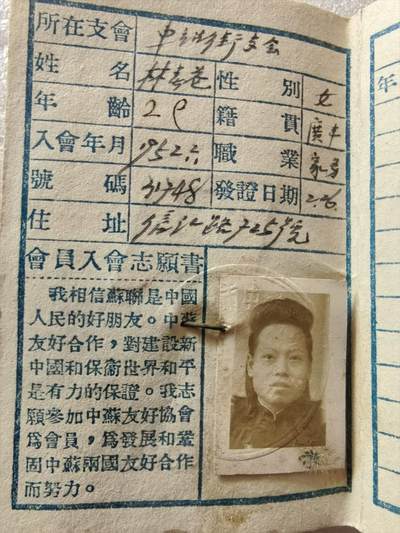 所在支會
姓名 林 性別 女
年齡 29 籍貫 廣東
入會年月 1952.6 職業 家务
號碼 31748 發證日期
住址 路725號
會員入會志願書
我相信蘇聯是中國
人民的好朋友。中蘇
友好合作，對建設新
中國和保衛世界和平
是有力的保證。我志
願參加中蘇友好協會
為會員，為發展和鞏
固中蘇兩國友好合作
而努力。
年